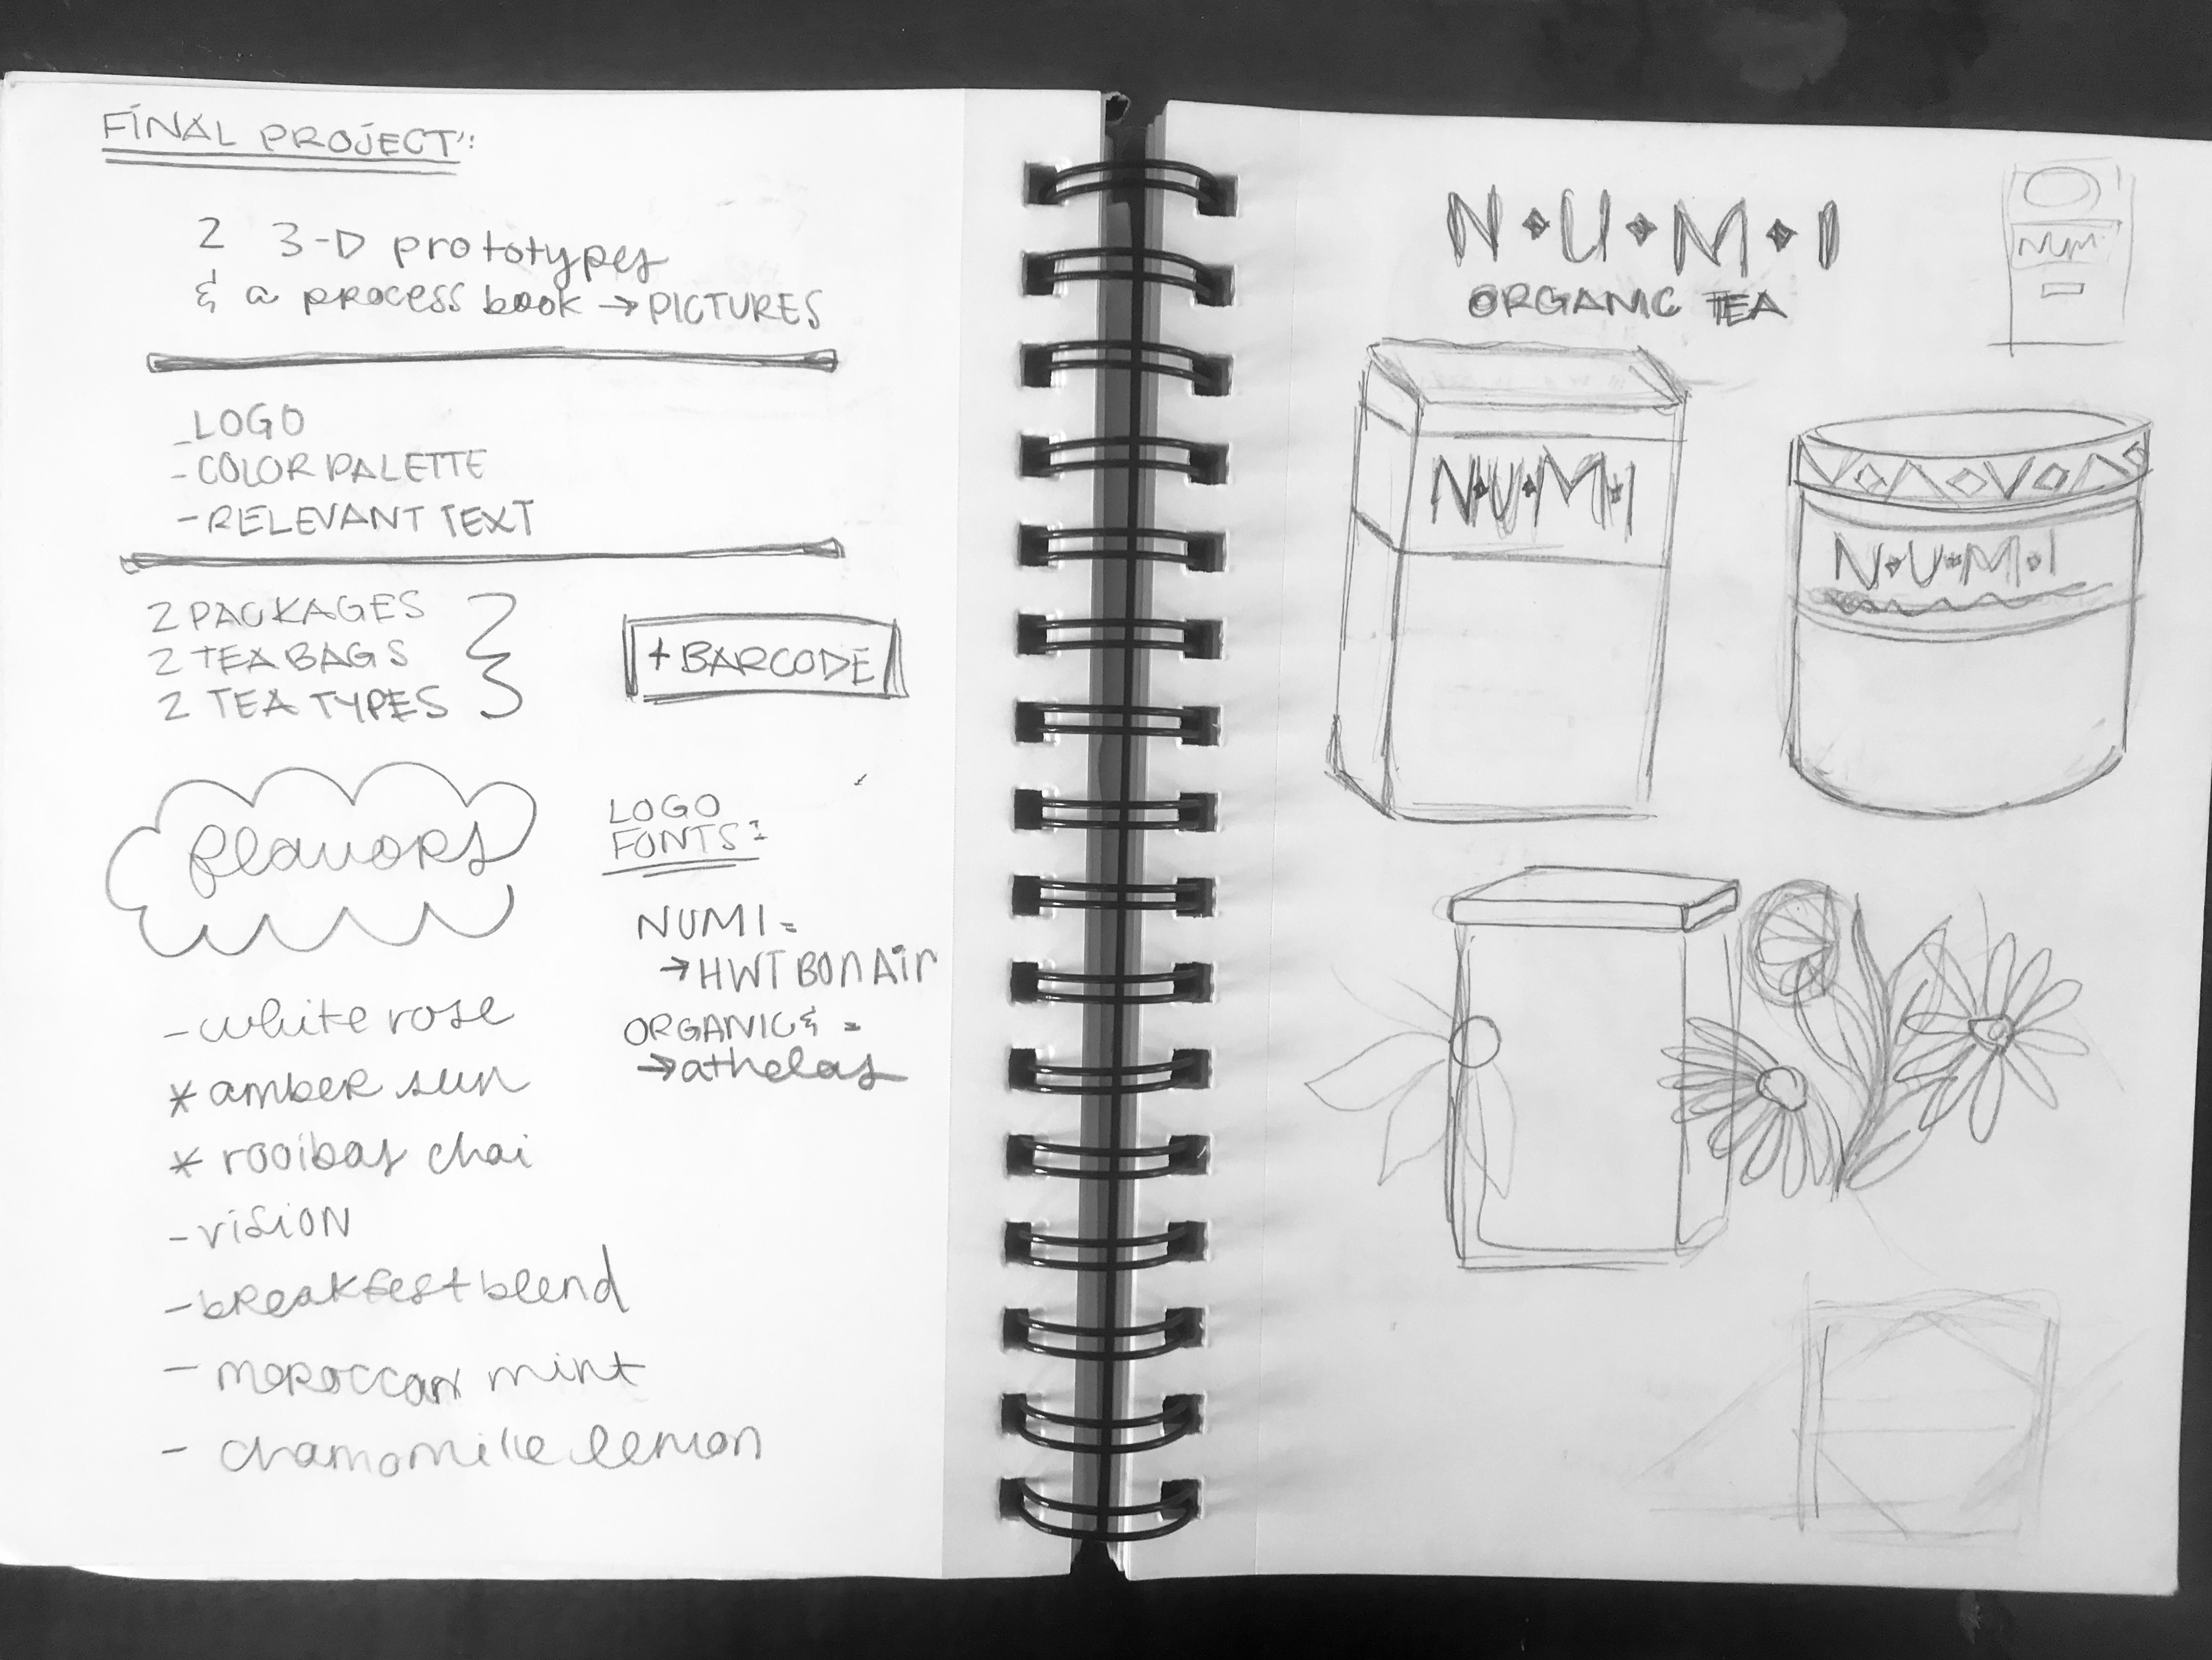 FINAL PROJECT:
2 3-D prototypes
& a process book → PICTURES
- LOGO
- COLOR PALETTE
- RELEVANT TEXT
2 PACKAGES
2 TEA BAGS
2 TEA TYPES
+ BARCODE
flavors
- white rose
* amber sun
* rooibos chai
- vision
- breakfest blend
- moroccan mint
- chamomile lemon
LOGO
FONTS:
NUMI =
→ HWT BON AIR
ORGANIC & =
→ athelas
N◆U◆M◆I
ORGANIC TEA
NUMI
N·U·M·I
N·U·M·I